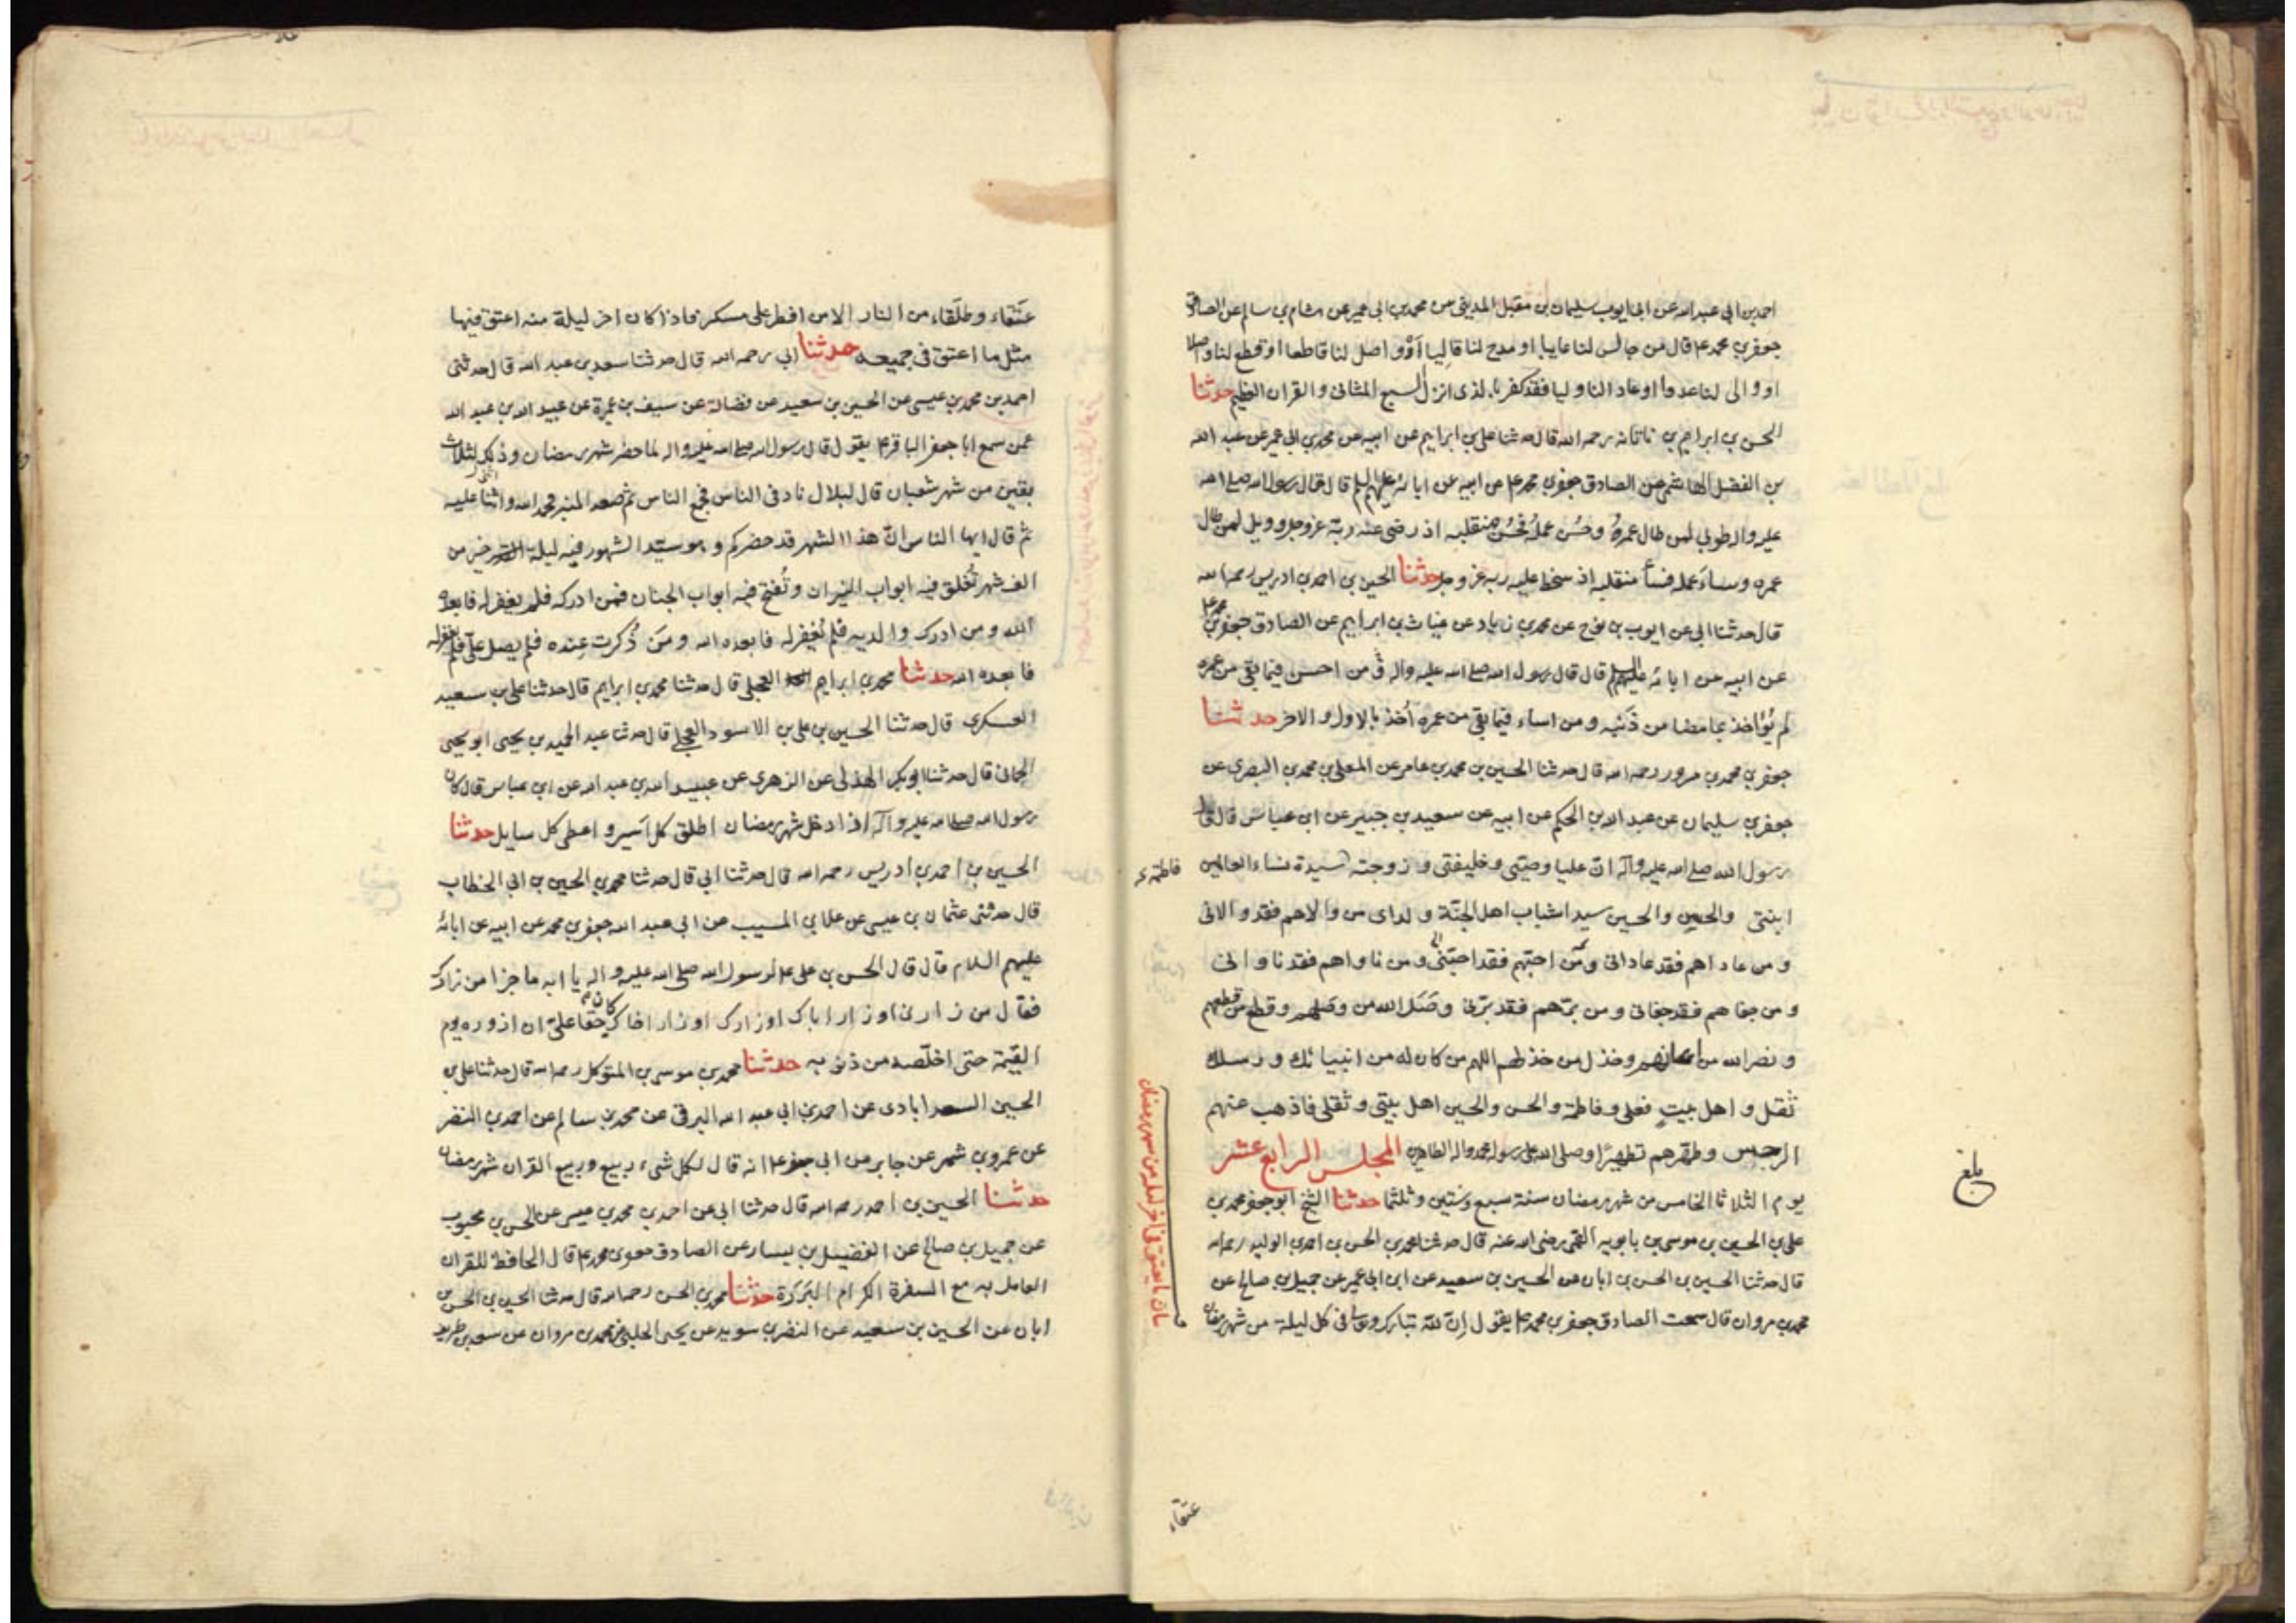 احمد بن ابي عبد الله عن ابي ايوب سليمان بن مقبل المديني عن محمد بن ابي عمير عن هشام بن سالم عن الصادق
جعفر بن محمد ع قال من جالس لنا عايبا او مدح لنا قاليا او واصل لنا قاطعا او قطع لنا واصلا
او والى لنا عدوا او عادا لنا وليا فقد كفر بالذى انزل السبع المثاني والقران العظيم حدثنا
الحسن بن ابراهيم بن ناتانه رحمه الله قال حدثنا علي بن ابراهيم عن ابيه عن محمد بن ابي عمير عن عبد الله
بن الفضل الهاشمي عن الصادق جعفر بن محمد ع عن ابيه عن ابائه عليهم السلم قال قال رسول الله صلى الله
عليه واله طوبي لمن طال عمرهُ وحسُن عملهُ فحسُن منقلبه اذ رضى عنه ربّه عز وجل و ويل لمن طال
عمره وساءَ عمله فساءَ منقلبه اذ سخط عليه ربه عز وجل حدثنا الحسين بن احمد بن ادريس رحمه الله
قال حدثنا ابى عن ايوب بن نوح عن محمد بن زياد عن غياث بن ابراهيم عن الصادق جعفر بن محمد ع
عن ابيه عن ابائه عليهم السلم قال قال رسول الله صلى الله عليه واله من احسن فيما بقى من عمره
لم يُؤاخذ بما مضا من ذَنبه ومن اساء فيما بقى من عمره اُخذ بالاول والاخر حدثنا
جعفر بن محمد بن مسرور رحمه الله قال حدثنا الحسين بن محمد بن عامر عن المعلى بن محمد البصرى عن
جعفر بن سليمان عن عبد الله بن الحكم عن ابيه عن سعيد بن جبير عن ابن عباس قال قال
رسول الله صلى الله عليه وآله ان عليا وصيّى وخليفتى وزوجته سيدة نساء العالمين فاطمة ع
ابنتى والحسن والحسين سيدا شباب اهل الجنّة ولداى من والاهم فقد والانى
ومن عاداهم فقد عادانى ومن احبّهم فقد احبّنى ومن ناواهم فقد ناوانى
ومن جفاهم فقد جفانى ومن برّهم فقد برّنى وصَل الله من وصلهم وقطع من قطعهم
ونصر الله من اعانهم وخذل من خذلهم اللهم من كان له من انبيائك ورسلك
ثقل واهل بيتٍ فعلى وفاطمة والحسن والحسين اهل بيتى وثقلى فاذهب عنهم
الرجس وطهّرهم تطهيرًا وصلى الله على رسوله محمد واله الطاهرين المجلس الرابع عشر
يوم الثلاثا الخامس من شهر رمضان سنة سبع وستين وثلثما حدثنا الشيخ ابو جعفر محمد بن
على بن الحسين بن موسى بن بابويه القمى رضى الله عنه قال حدثنا محمد بن الحسن بن احمد بن الوليد رحمه الله
قال حدثنا الحسين بن الحسن بن ابان عن الحسين بن سعيد عن ابن ابى عمير عن جميل بن صالح عن
محمد بن مروان قال سمعت الصادق جعفر بن محمد ع يقول اِنّ لله تبارك وتعالى فى كل ليلة من شهر رمضان
بيان ما يعتق فى اخر ليلة من شهر رمضان
بلغ
عتقاء
عتَقاء وطلَقاء من النار الا من افطر على مسكر فاذا كان اخر ليلة منه اعتق فيها
مثل ما اعتق فى جميعه حدثنا ابى رحمه الله قال حدثنا سعد بن عبد الله قال حدثنى
احمد بن محمد بن عيسى عن الحسين بن سعيد عن فضالة عن سيف بن عميرة عن عبيد الله بن عبد الله
عمن سمع ابا جعفر الباقر ع يقول قال رسول الله صلى الله عليه واله لما حضر شهر رمضان وذلك لثلاث
بقين من شهر شعبان قال لبلال ناد فى الناس فجمع الناس ثم صعد المنبر فحمد الله واثنا عليه
ثم قال ايها الناس انّ هذا الشهر قد حضركم وهو سيّد الشهور فيه ليلة القدر خير من
الف شهر تُغلق فيه ابواب النيران وتُفتح فيه ابواب الجنان فمن ادركه فلم يغفر له فابعده
الله ومن ادرك والديه فلم يُغفر له فابعده الله ومَن ذُكرت عنده فلم يصل علىّ فلم يغفر له
فابعده الله حدثنا محمد بن ابراهيم العجلى قال حدثنا محمد بن ابراهيم قال حدثنا على بن سعيد
العسكرى قال حدثنا الحسين بن على بن الاسود العجلى قال حدثنا عبد الحميد بن يحيى ابو يحيى
الحمانى قال حدثنا ابو بكر الهذلى عن الزهرى عن عبيد الله بن عبد الله عن ابن عباس قال كان
رسول الله صلى الله عليه وآله اذا دخل شهر رمضان اطلق كل اسير واعطى كل سايل حدثنا
الحسين بن احمد بن ادريس رحمه الله قال حدثنا ابى قال حدثنا محمد بن الحسين بن ابى الخطاب
قال حدثنى عثمان بن عيسى عن علا بن المسيب عن ابى عبد الله جعفر بن محمد عن ابيه عن ابائه
عليهم السلام قال قال الحسن بن على ع لرسول الله صلى الله عليه واله يا ابه ما جزا من زارك
فقال من زارنى او زار اباك او زارك او زار اخاك كان حقا علىّ ان ازوره يوم
القيٰمة حتى اخلّصه من ذنوبه حدثنا محمد بن موسى بن المتوكل رحمه الله قال حدثنا على بن
الحسين السعدابادى عن احمد بن ابى عبد الله البرقى عن محمد بن سالم عن احمد بن النضر
عن عمرو بن شمر عن جابر عن ابى جعفر ع انه قال لكل شىء ربيع وربيع القران شهر رمضان
حدثنا الحسين بن احمد رحمه الله قال حدثنا ابى عن احمد بن محمد بن عيسى عن الحسن بن محبوب
عن جميل بن صالح عن الفضيل بن يسار عن الصادق جعفر بن محمد ع قال الحافظ للقران
العامل به مع السفرة الكرام البَرَرَة حدثنا محمد بن الحسن رحمه الله قال حدثنا الحسين بن الحسن بن
ابان عن الحسين بن سعيد عن النضر بن سويد عن يحيى الحلبى عن محمد بن مروان عن سعد بن طريف